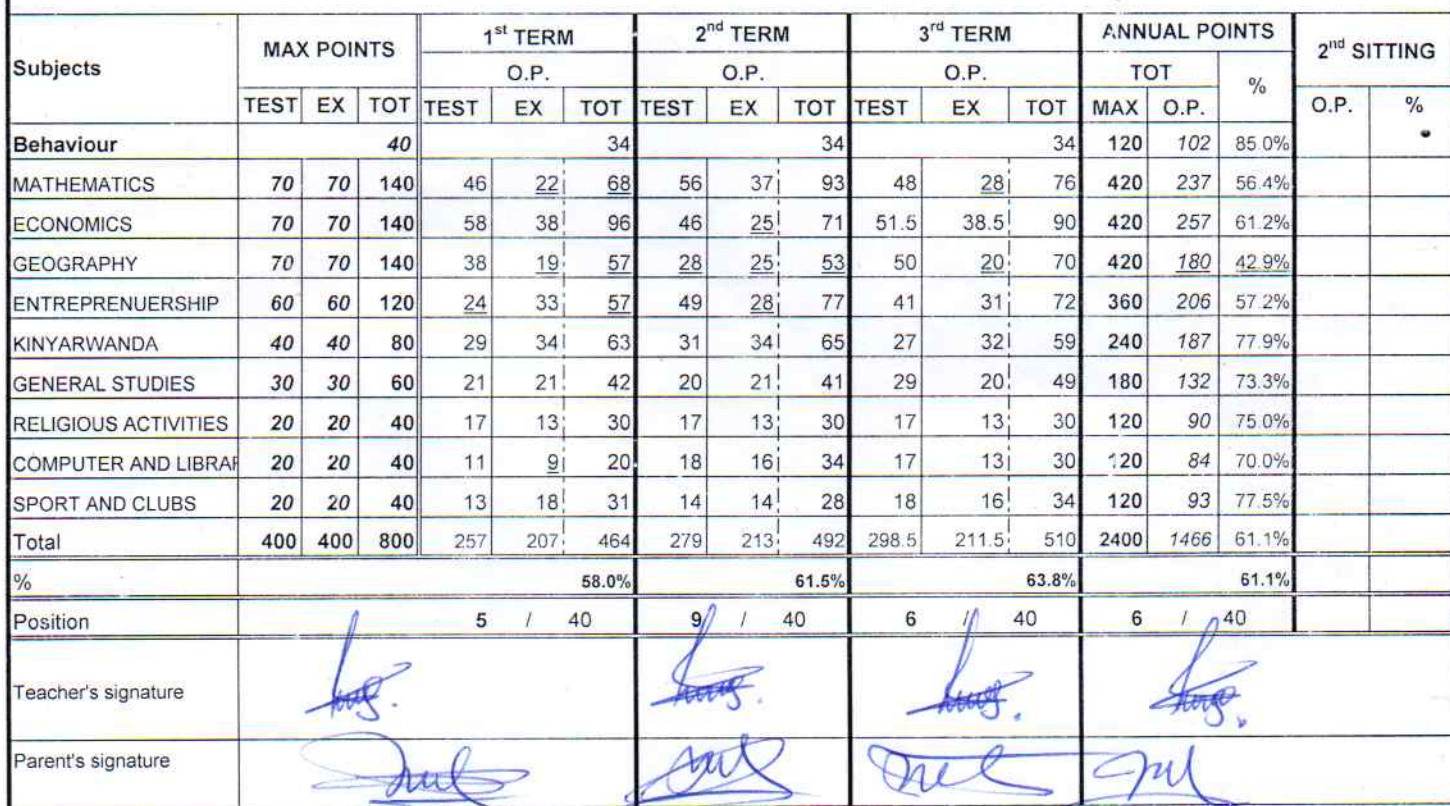 Subjects MAX POINTS 1st TERM 2nd TERM 3rd TERM ANNUAL POINTS 2nd SITTING
O.P. O.P. O.P. TOT %
TEST EX TOT TEST EX TOT TEST EX TOT TEST EX TOT MAX O.P. O.P. %
Behaviour 40 34 34 34 120 102 85.0%
MATHEMATICS 70 70 140 46 22 68 56 37 93 48 28 76 420 237 56.4%
ECONOMICS 70 70 140 58 38 96 46 25 71 51.5 38.5 90 420 257 61.2%
GEOGRAPHY 70 70 140 38 19 57 28 25 53 50 20 70 420 180 42.9%
ENTREPRENUERSHIP 60 60 120 24 33 57 49 28 77 41 31 72 360 206 57.2%
KINYARWANDA 40 40 80 29 34 63 31 34 65 27 32 59 240 187 77.9%
GENERAL STUDIES 30 30 60 21 21 42 20 21 41 29 20 49 180 132 73.3%
RELIGIOUS ACTIVITIES 20 20 40 17 13 30 17 13 30 17 13 30 120 90 75.0%
COMPUTER AND LIBRAR 20 20 40 11 9 20 18 16 34 17 13 30 120 84 70.0%
SPORT AND CLUBS 20 20 40 13 18 31 14 14 28 18 16 34 120 93 77.5%
Total 400 400 800 257 207 464 279 213 492 298.5 211.5 510 2400 1466 61.1%
% 58.0% 61.5% 63.8% 61.1%
Position 5 / 40 9 / 40 6 / 40 6 / 40
Teacher's signature
Parent's signature